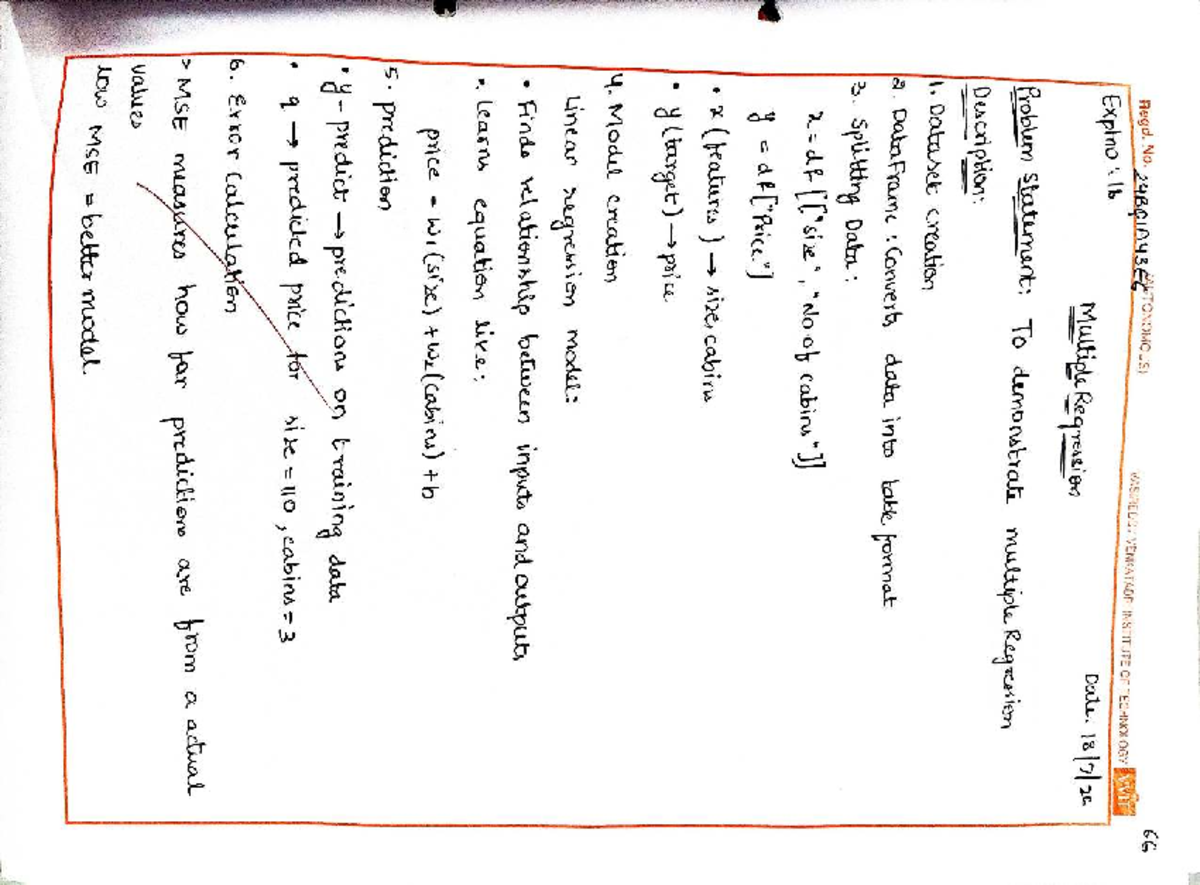 66
Regd. No. (AUTONOMOUS) VASIREDDY VENKATADRI INSTITUTE OF TECHNOLOGY VVIT
Expt no: 1b Date: 18/7/25
Multiple Regression
Problem Statement: To demonstrate multiple Regression
Description:
1. Dataset creation
2. DataFrame: Converts data into table format
3. Splitting Data:
x = df[["size", "No of cabins"]]
y = df["Price"]
• x (features) → size, cabins
• y (target) → price
4. Model creation
Linear regression model:
• Finds relationship between inputs and outputs
• learns equation like:
price = w1(size) + w2(cabins) + b
5. prediction
• y-predict → predictions on training data
• q → predicted price for size = 110, cabins = 3
6. Error Calculation
> MSE measures how far predictions are from a actual
values
low MSE = better model.